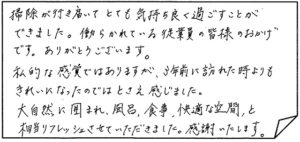 掃除が行き届いてとても気持ち良く過ごすことが
できました。働らかれている従業員の皆様のおかげ
です。ありがとうございます。
私的な感覚ではありますが、3年前に訪れた時よりも
きれいになったのではとさえ感じました。
大自然に囲まれ、風呂、食事、快適な空間、と
相当リフレッシュさせていただきました。感謝いたします。